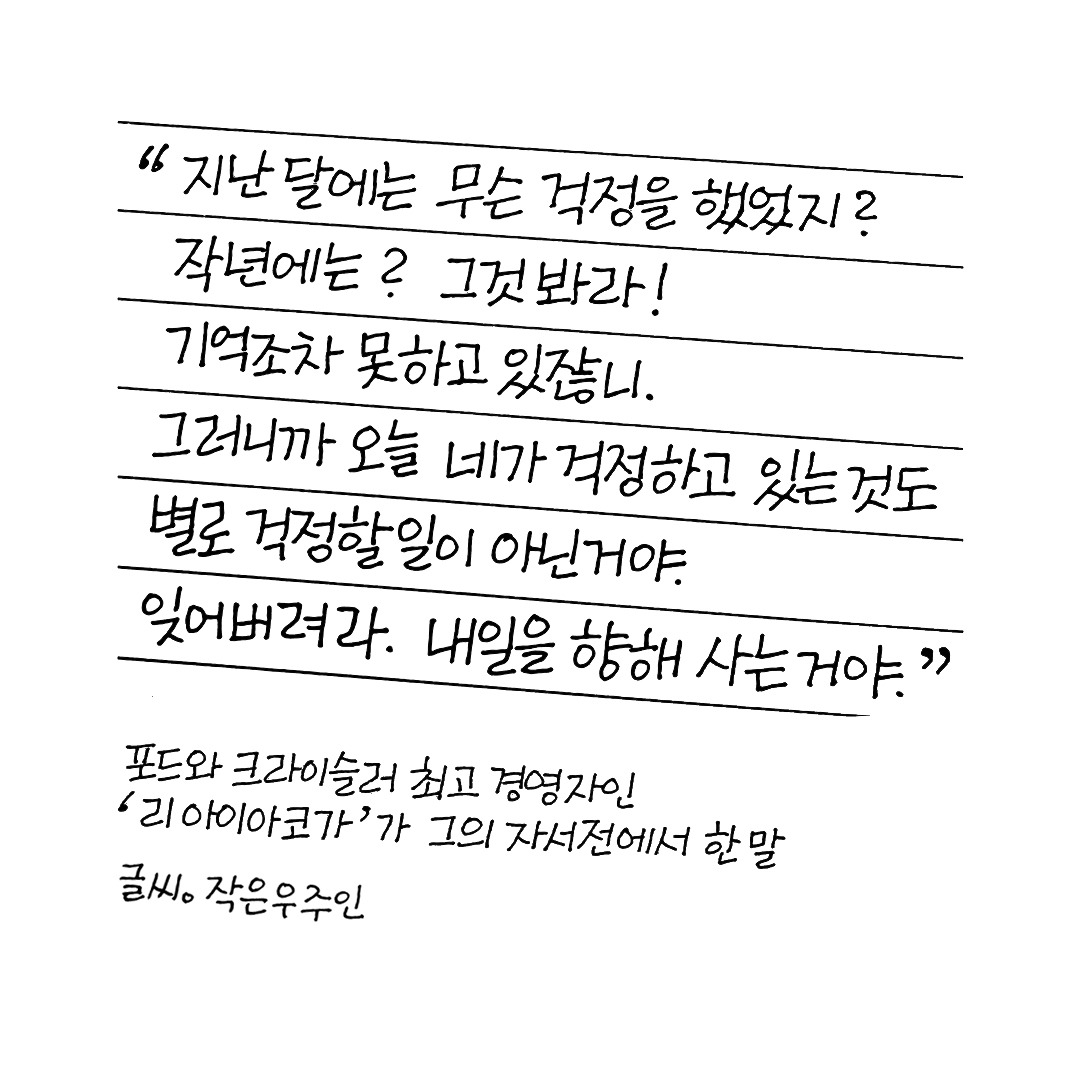 “ 지난 달에는 무슨 걱정을 했었지?
작년에는? 그것 봐라!
기억조차 못하고 있잖니.
그러니까 오늘 네가 걱정하고 있는것도
별로 걱정할일이 아닌거야.
잊어버려라. 내일을 향해 사는거야.”
포드와 크라이슬러 최고 경영자인
‘리 아이아코가’가 그의 자서전에서 한 말
글씨。작은우주인